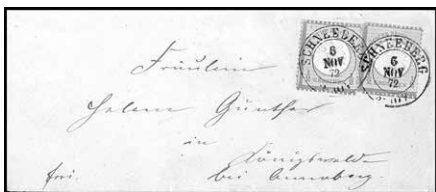 SCHNEEBERG
6
NOV
72
SCHNEEBERG
6
NOV
72
Fräulein
Helene Günther
in
Königswalde
bei Annaberg.
frei.